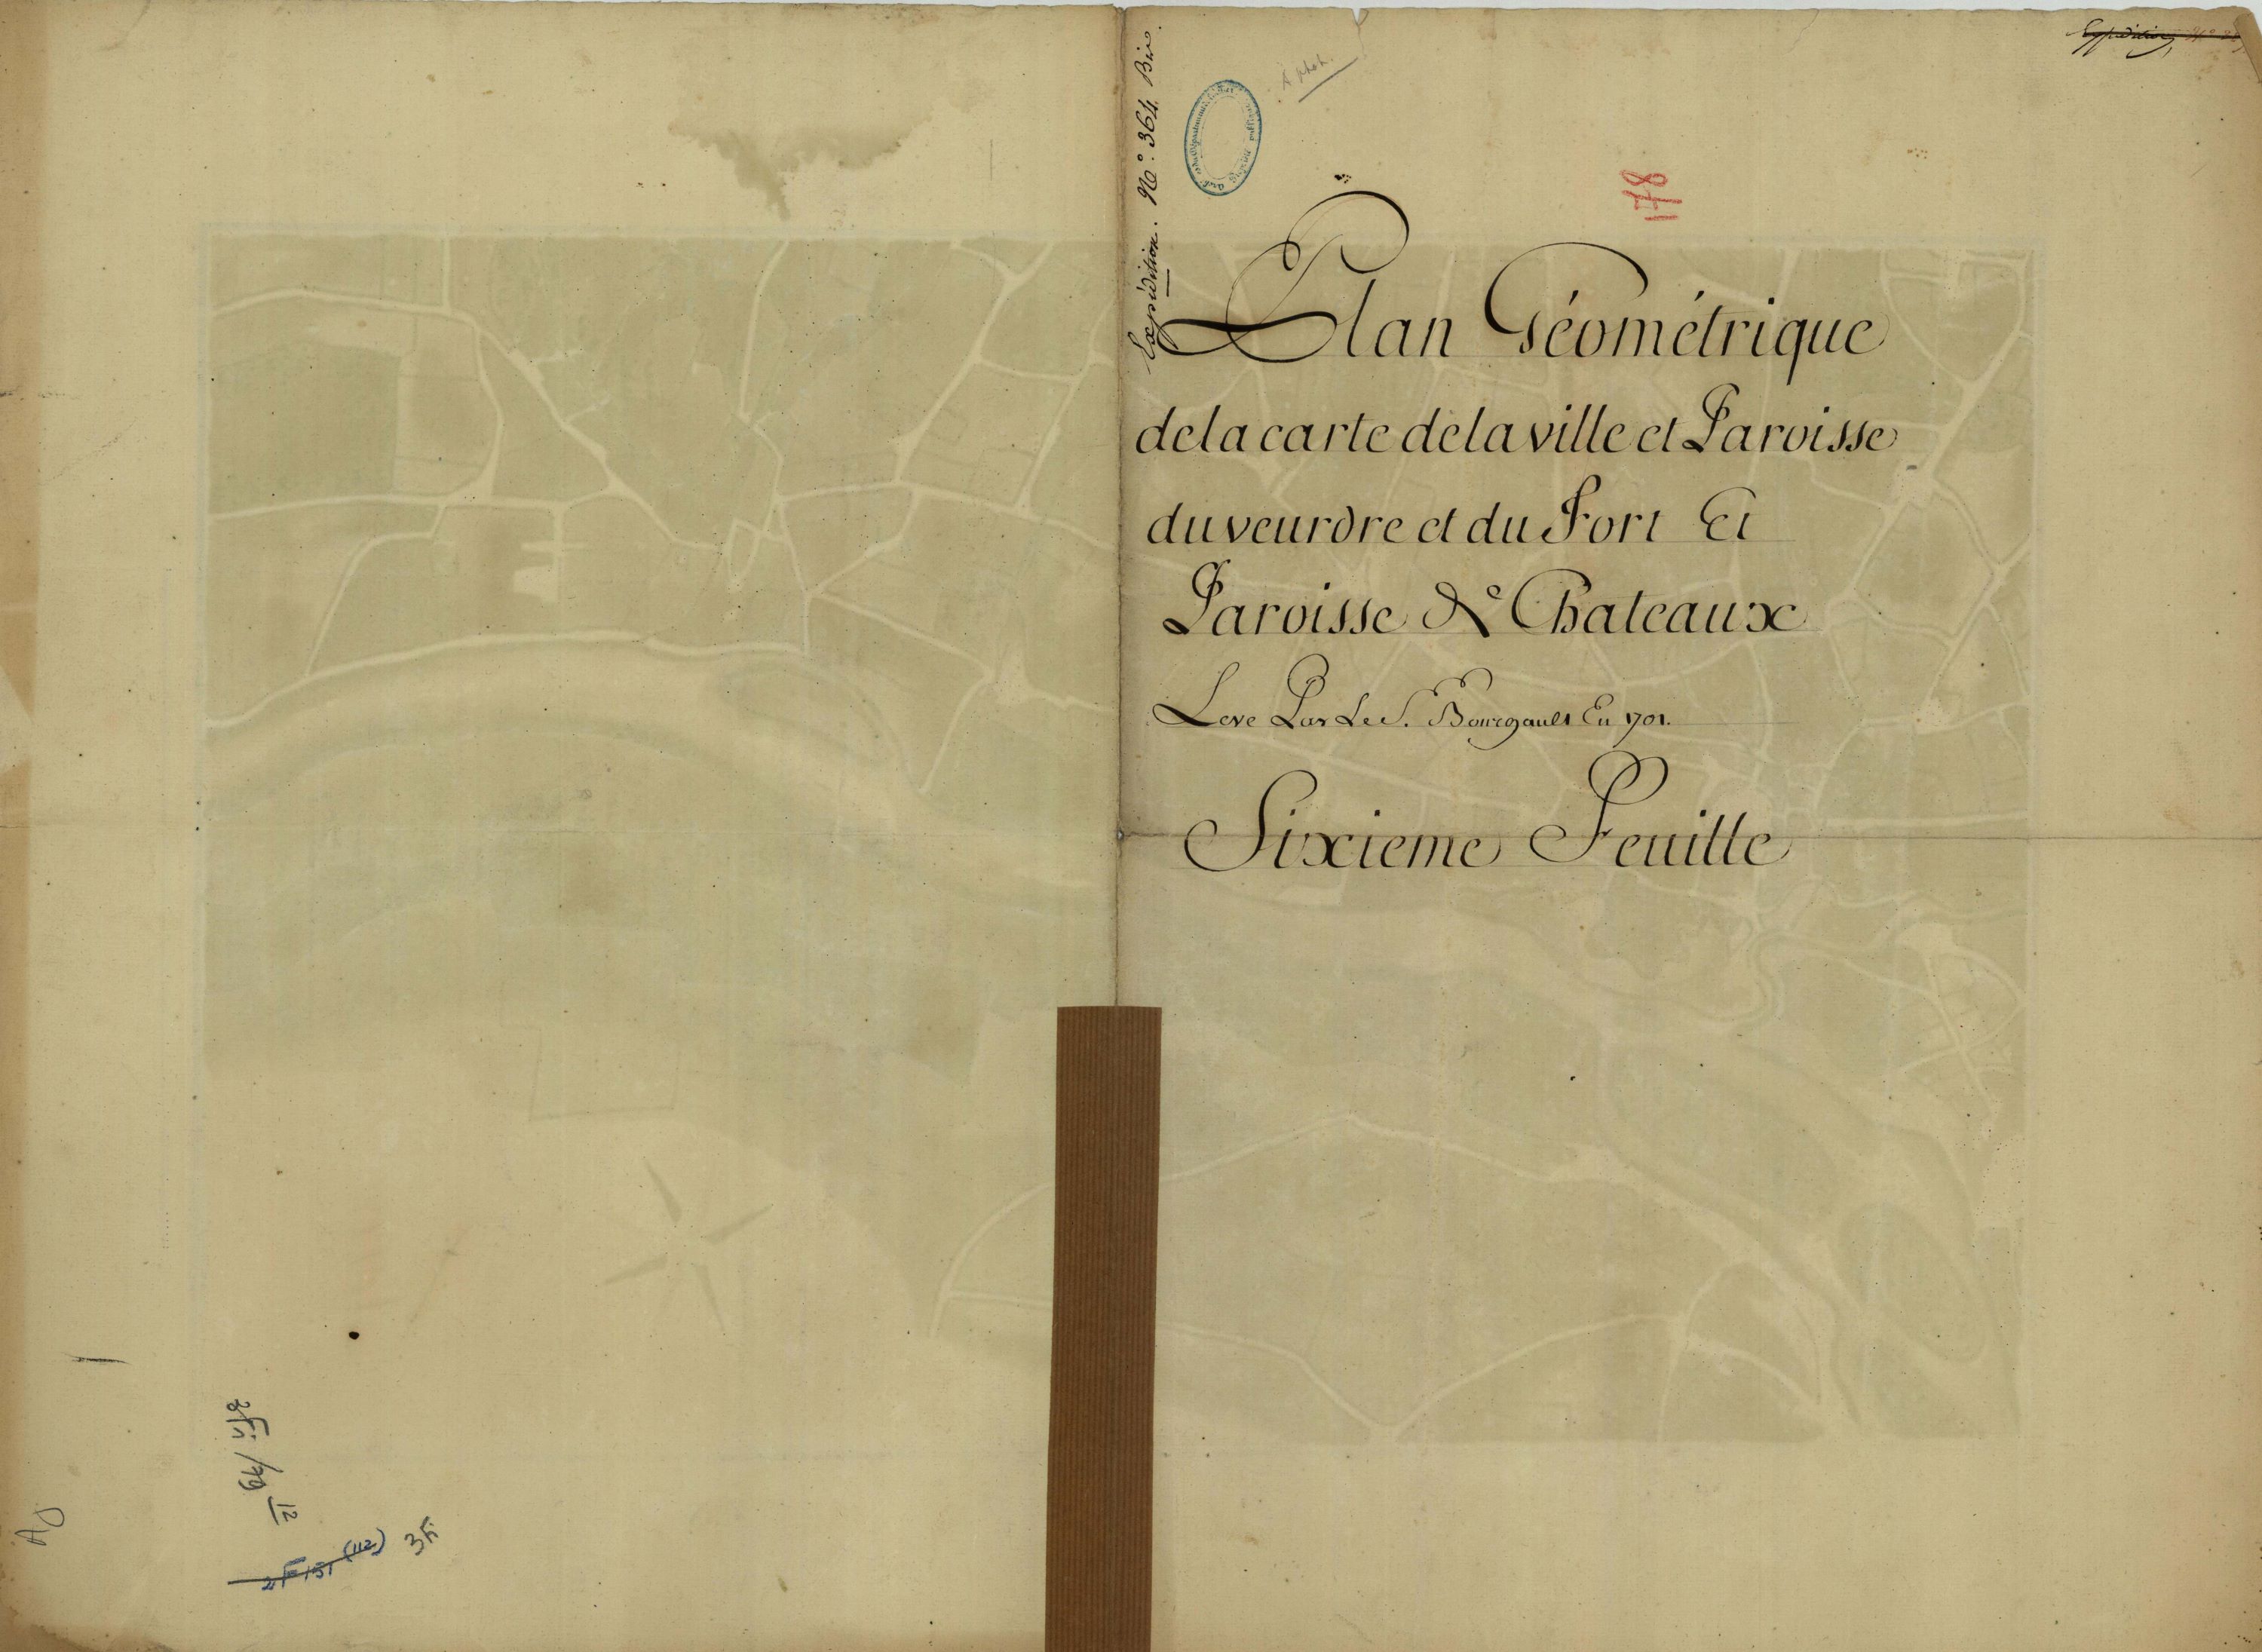 Expédition. N.° 364. Bis.
178
Plan Géométrique
de la carte de la ville et Paroisse
du veurdre et du Fort Et
Paroisse De Chateaux
Levé Par Le S. Bourgault En 1701.
Sixieme Feuille
12
3Fi
AD